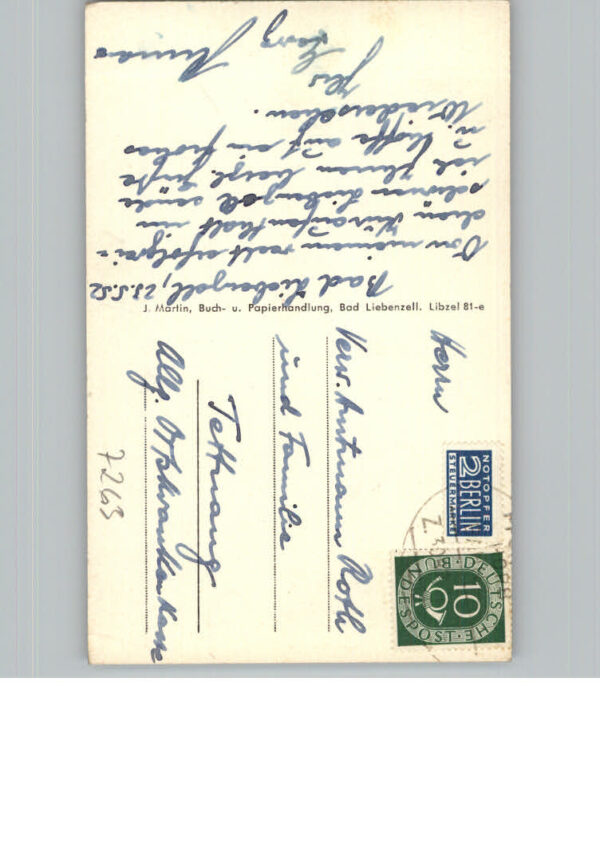 Bad Liebenzell, 23.5.52
Von meinem recht erfolgrei-
chen Kuraufenthalt im
schönen Liebenzell sende
ich Ihnen herzl. Grüße
u. hoffe auf ein frohes
Wiedersehen.
Ihr
Georg
J. Martin, Buch- u. Papierhandlung, Bad Liebenzell. Libzel 81-e
Herrn
Verw. Amtmann Roth
und Familie
Tettnang
Allg. Ortskrankenkasse
7263
NOTOPFER
2 BERLIN
STEUERMARKE
DEUTSCHE BUNDESPOST
10